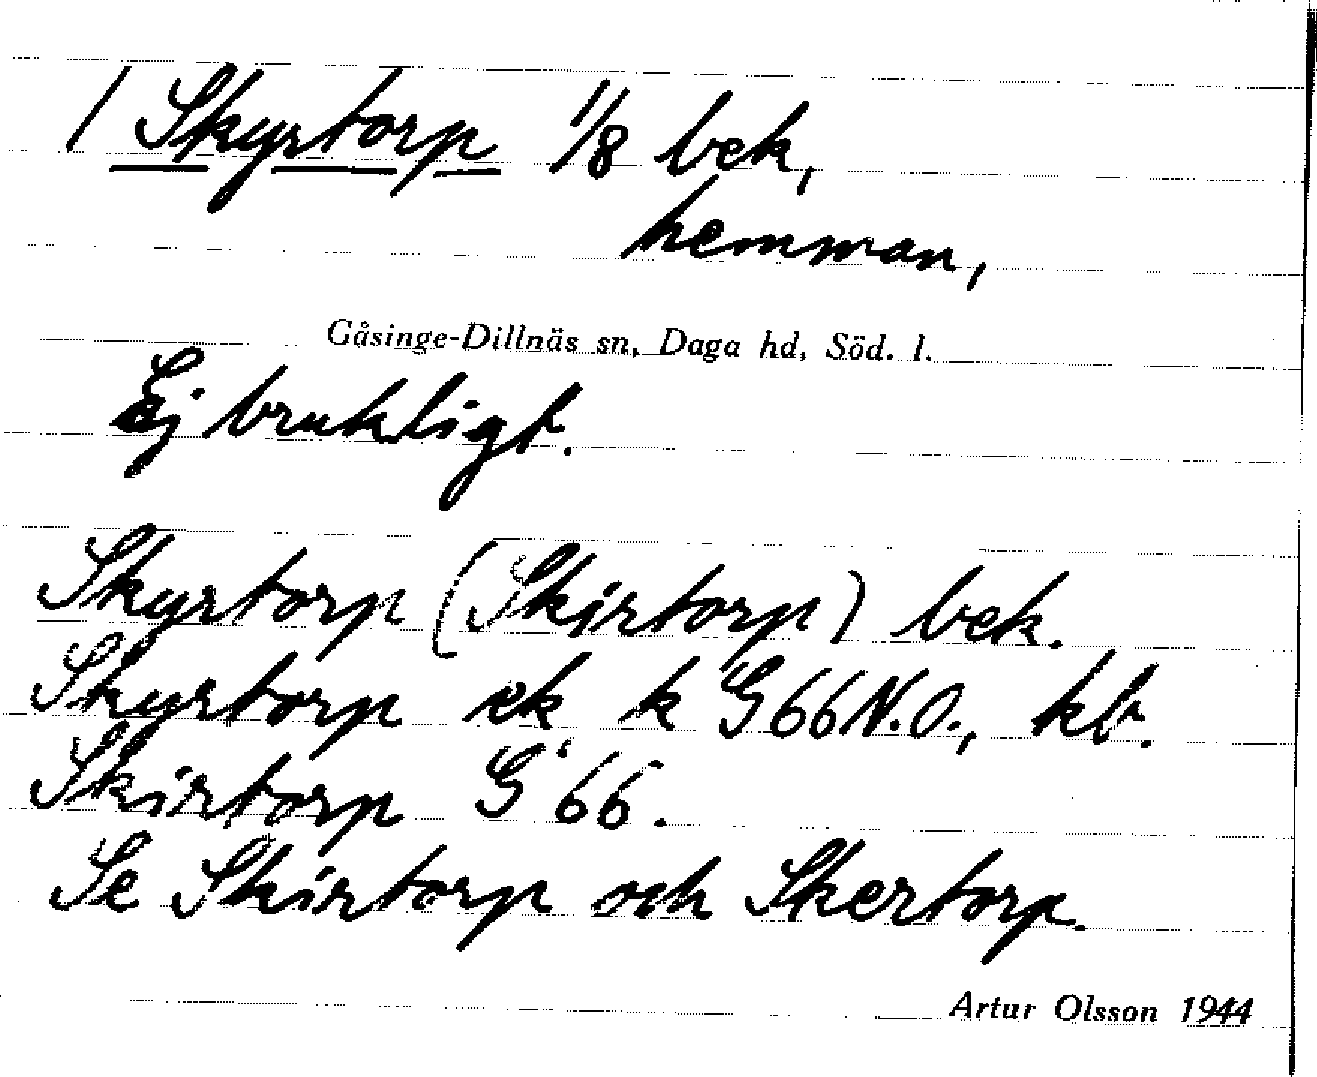 / Skyrtorp 1/8 bek,
hemman,
Gåsinge-Dillnäs sn, Daga hd, Söd. l.
Ej brukligt.
Skyrtorp (Skirtorp) bek.
Skyrtorp ek k G 66 N.O., kb.
Skirtorp G 66.
Se Skirtorp och Skertorp.
Artur Olsson 1944